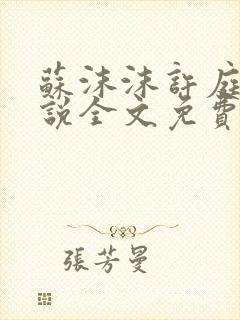 蘇沫沫許庭
說全文免費
張芳曼